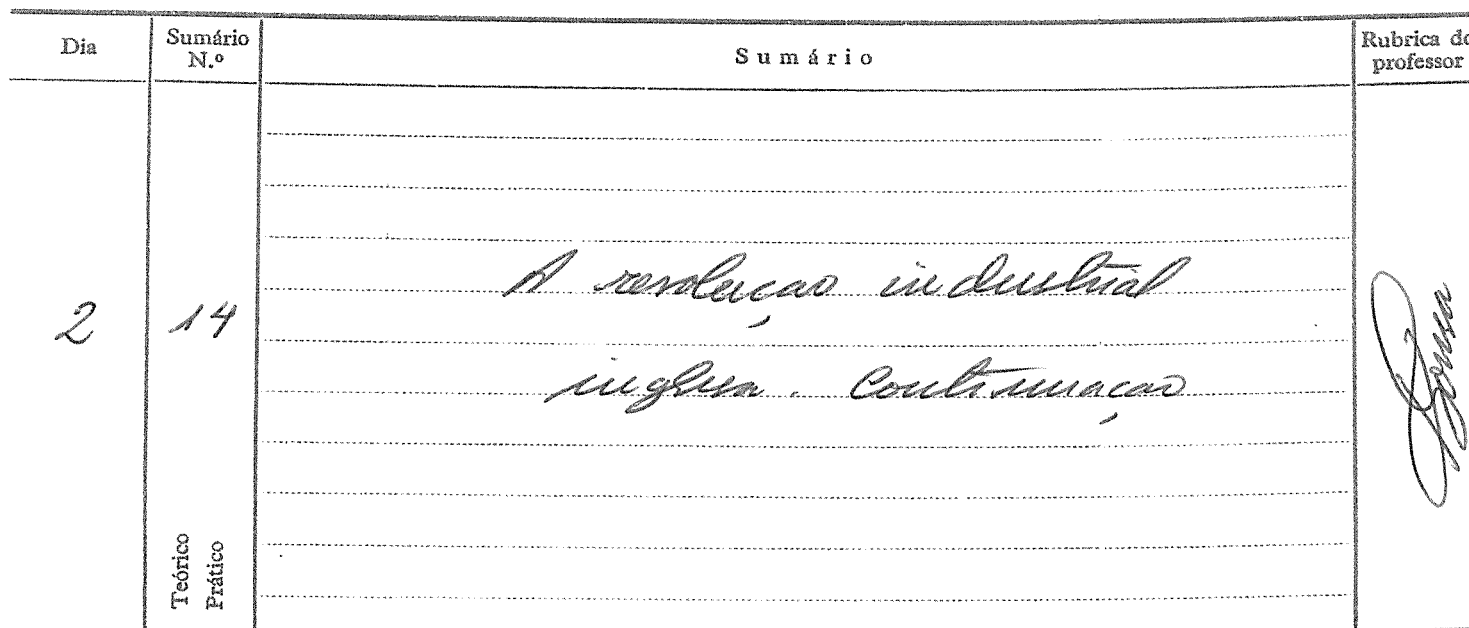 Dia
Sumário
N.º
Sumário
Rubrica do
professor
2
14
A revolução industrial
inglesa. Continuação
Sousa
Teórico
Prático